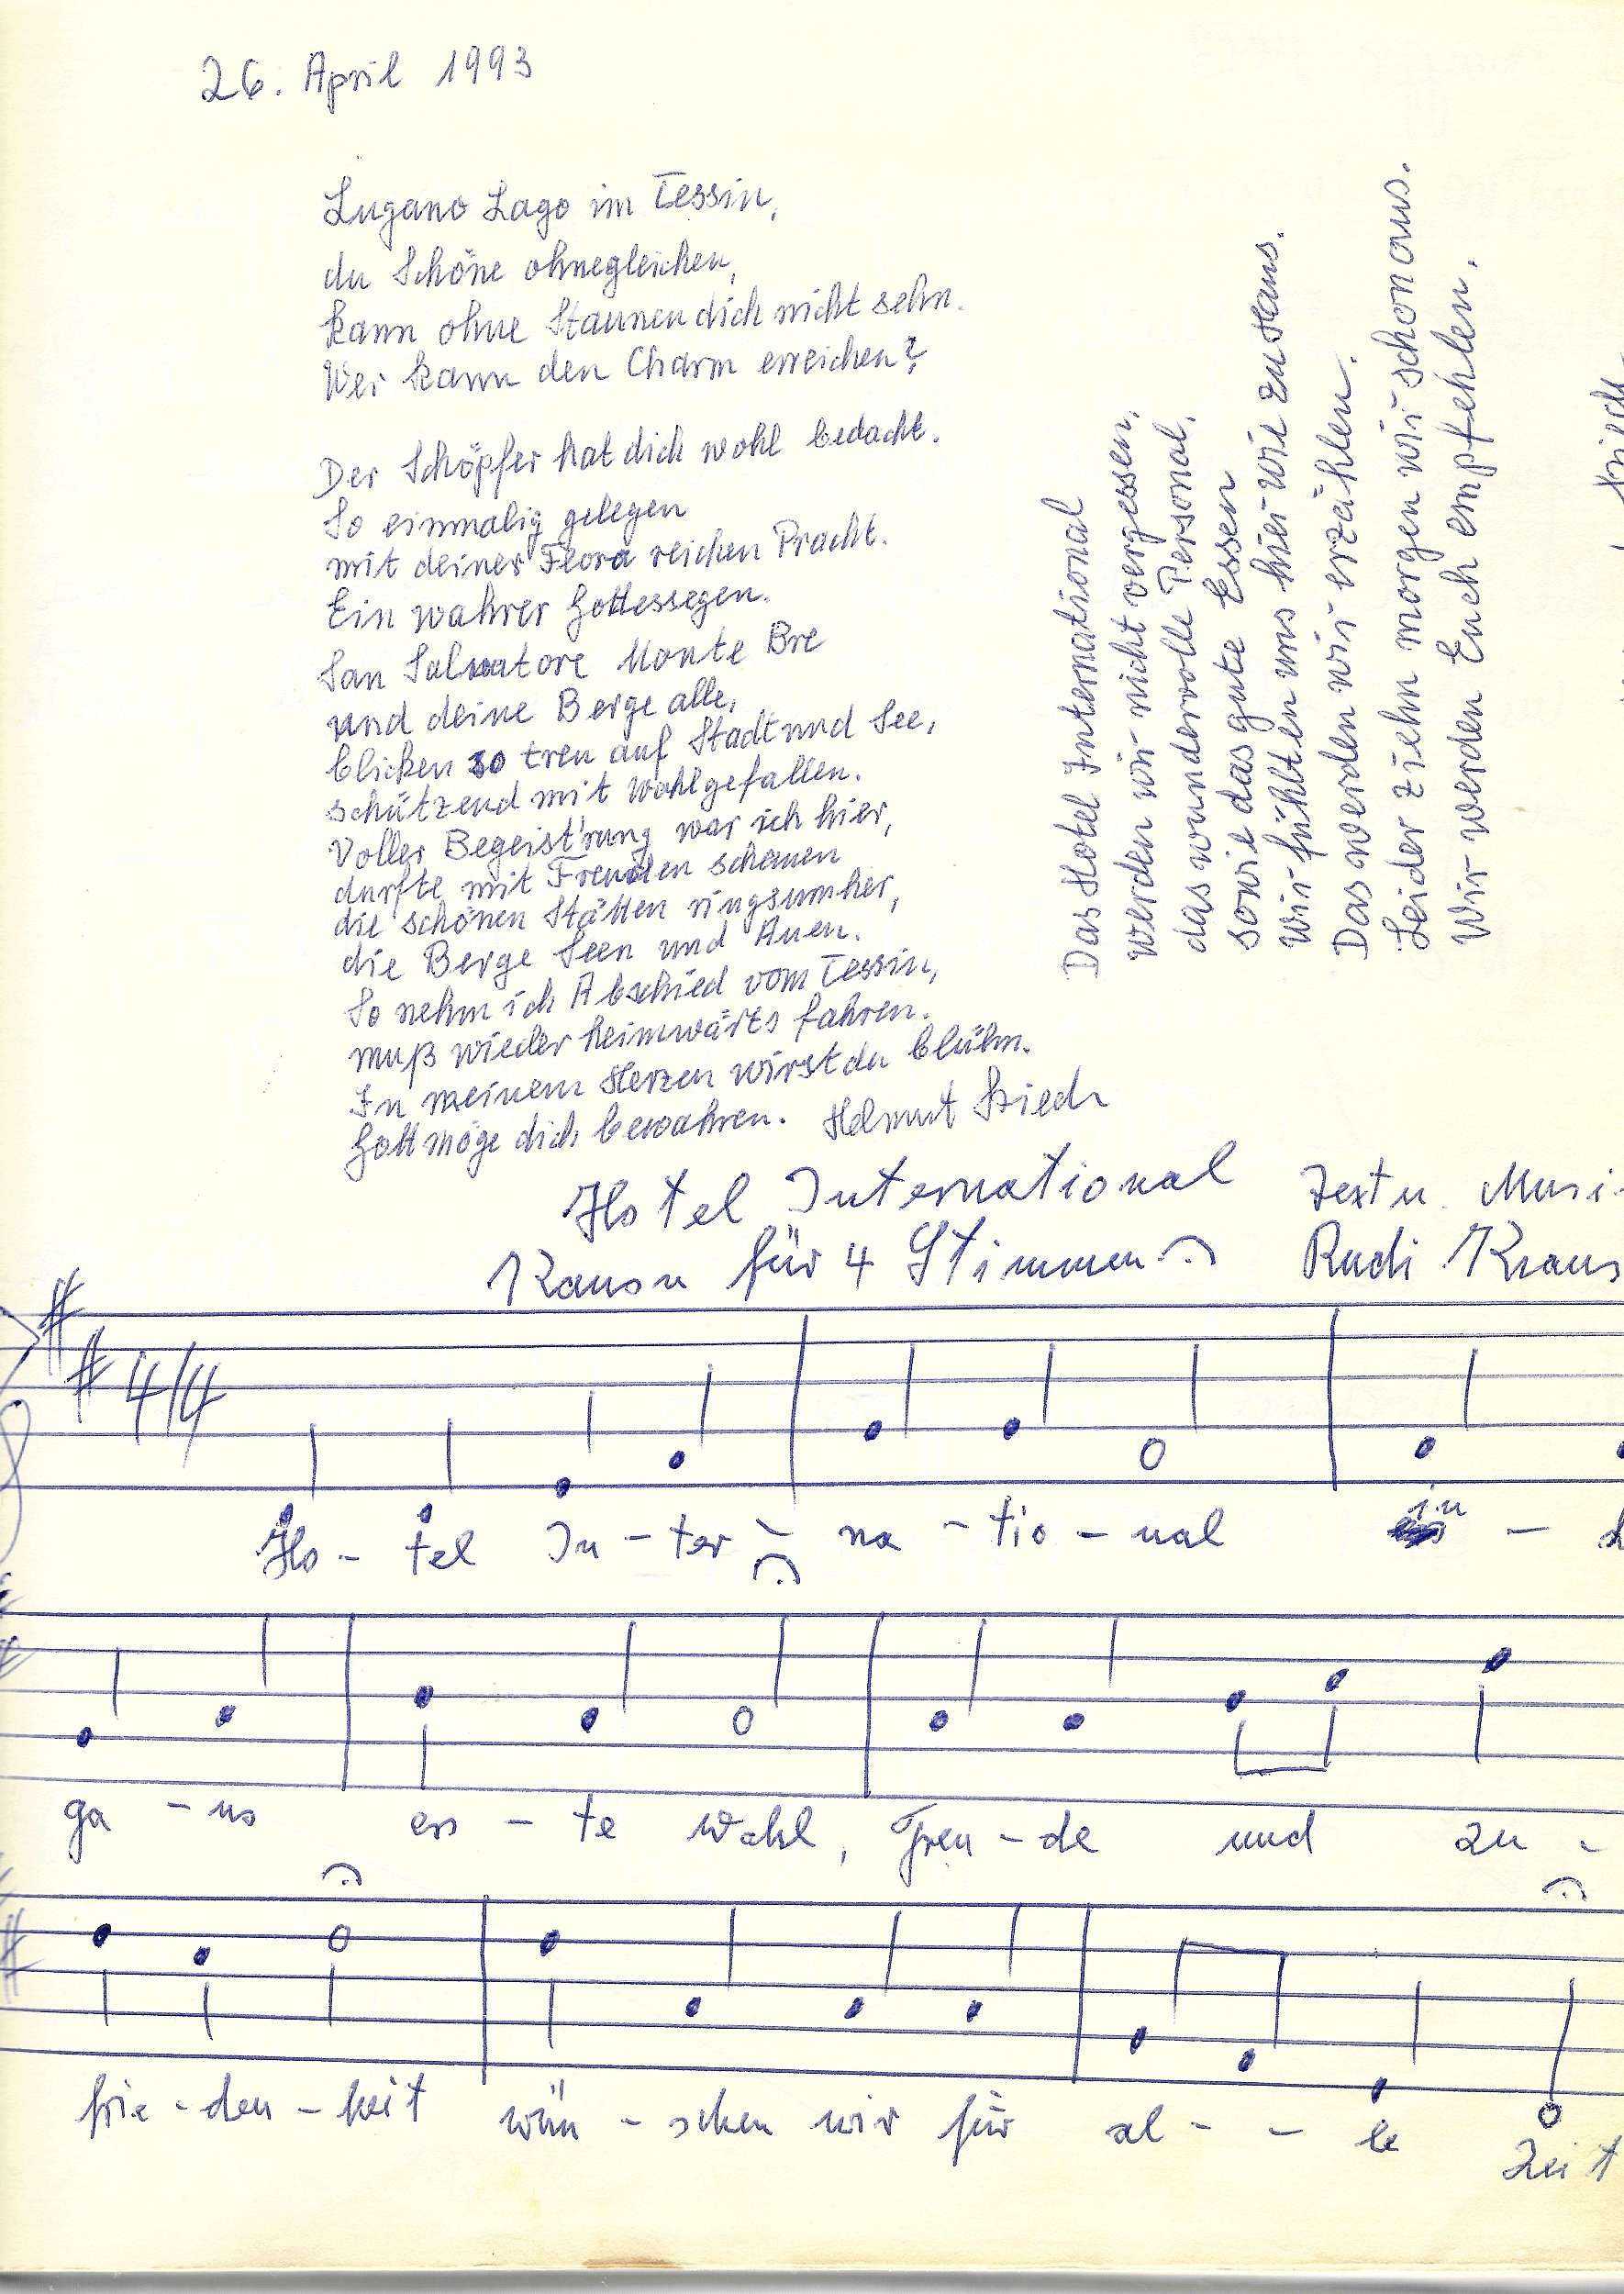 26. April 1993
Lugano Lago im Tessin,
du Schöne ohnegleichen,
kann ohne Staunen dich nicht sehn.
Wer kann den Charm erreichen?
Der Schöpfer hat dich wohl bedacht.
So einmalig gelegen
mit deiner Flora reichen Pracht.
Ein wahrer Gottessegen.
San Salvatore Monte Bre
und deine Berge alle,
blicken so treu auf Stadt und See,
schützend mit Wohlgefallen.
Voller Begeist'rung war ich hier,
durfte mit Freuden schauen
die schönen Stätten ringsumher,
die Berge Seen und Auen.
So nehm ich Abschied vom Tessin,
muß wieder heimwärts fahren.
In meinem Herzen wirst du blühn.
Gott möge dich bewahren. Helmut
Das Hotel International
werden wir nicht vergessen,
das wundervolle Personal,
sowie das gute Essen
Wir fühlten uns hier wie zu Haus.
Das werden wir erzählen.
Leider ziehn morgen wir schon aus.
Wir werden Euch empfehlen.
Hotel International Text u. Musi
Kanon für 4 Stimmen Rudi Kraus
4/4
Ho - tel In - ter - na - tio - nal in - L
ga - no ers - te Wahl, Freu - de und zu -
frie - den - heit wün - schen wir für al - - le Zeit